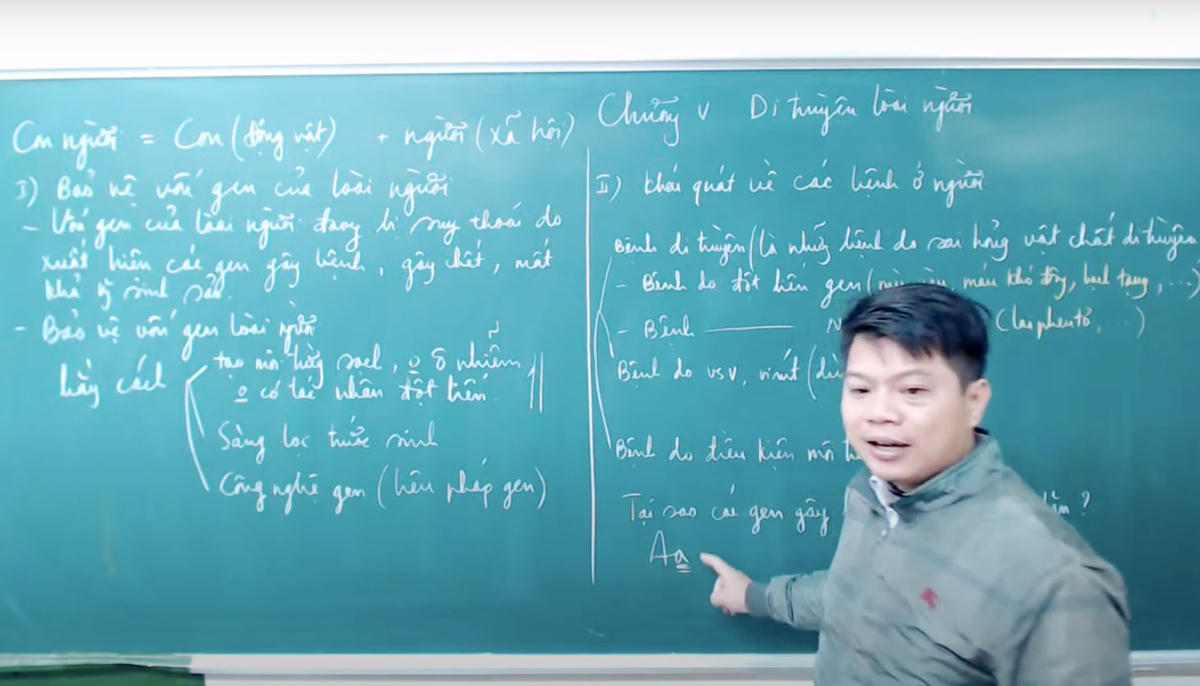 Con người = Con (động vật) + người (xã hội)
I) Bảo vệ vốn gen của loài người
- Vốn gen của loài người đang bị suy thoái do
xuất hiện các gen gây bệnh, gây chết, mất
khả sinh sản.
- Bảo vệ vốn gen loài người
bằng cách
tạo môi trường sạch, o ô nhiễm
o có tác nhân đột biến.
Sàng lọc trước sinh
Công nghệ gen (liệu pháp gen)
Chương V Di truyền loài người
II) Khái quát về các bệnh ở người
Bệnh di truyền (là những bệnh do sai hỏng vật chất di truyền
- Bệnh do đột biến gen ( máu khó đông, bạch tạng, ...)
- Bệnh —— N
Bệnh do vsv, virut (
Bệnh do điều kiện môi
Tại sao các gen gây ?
Aa